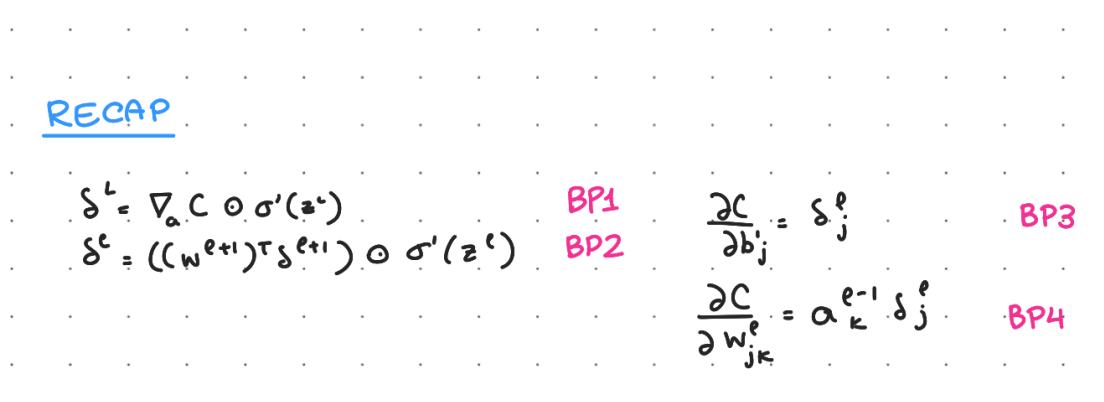 RECAP
δ^L = ∇_a C ⊙ σ'(z^L) BP1
δ^ℓ = ((w^{ℓ+1})^T δ^{ℓ+1}) ⊙ σ'(z^ℓ) BP2
∂C/∂b'_j = δ^ℓ_j BP3
∂C/∂w^ℓ_{jk} = a^{ℓ-1}_k δ^ℓ_j BP4